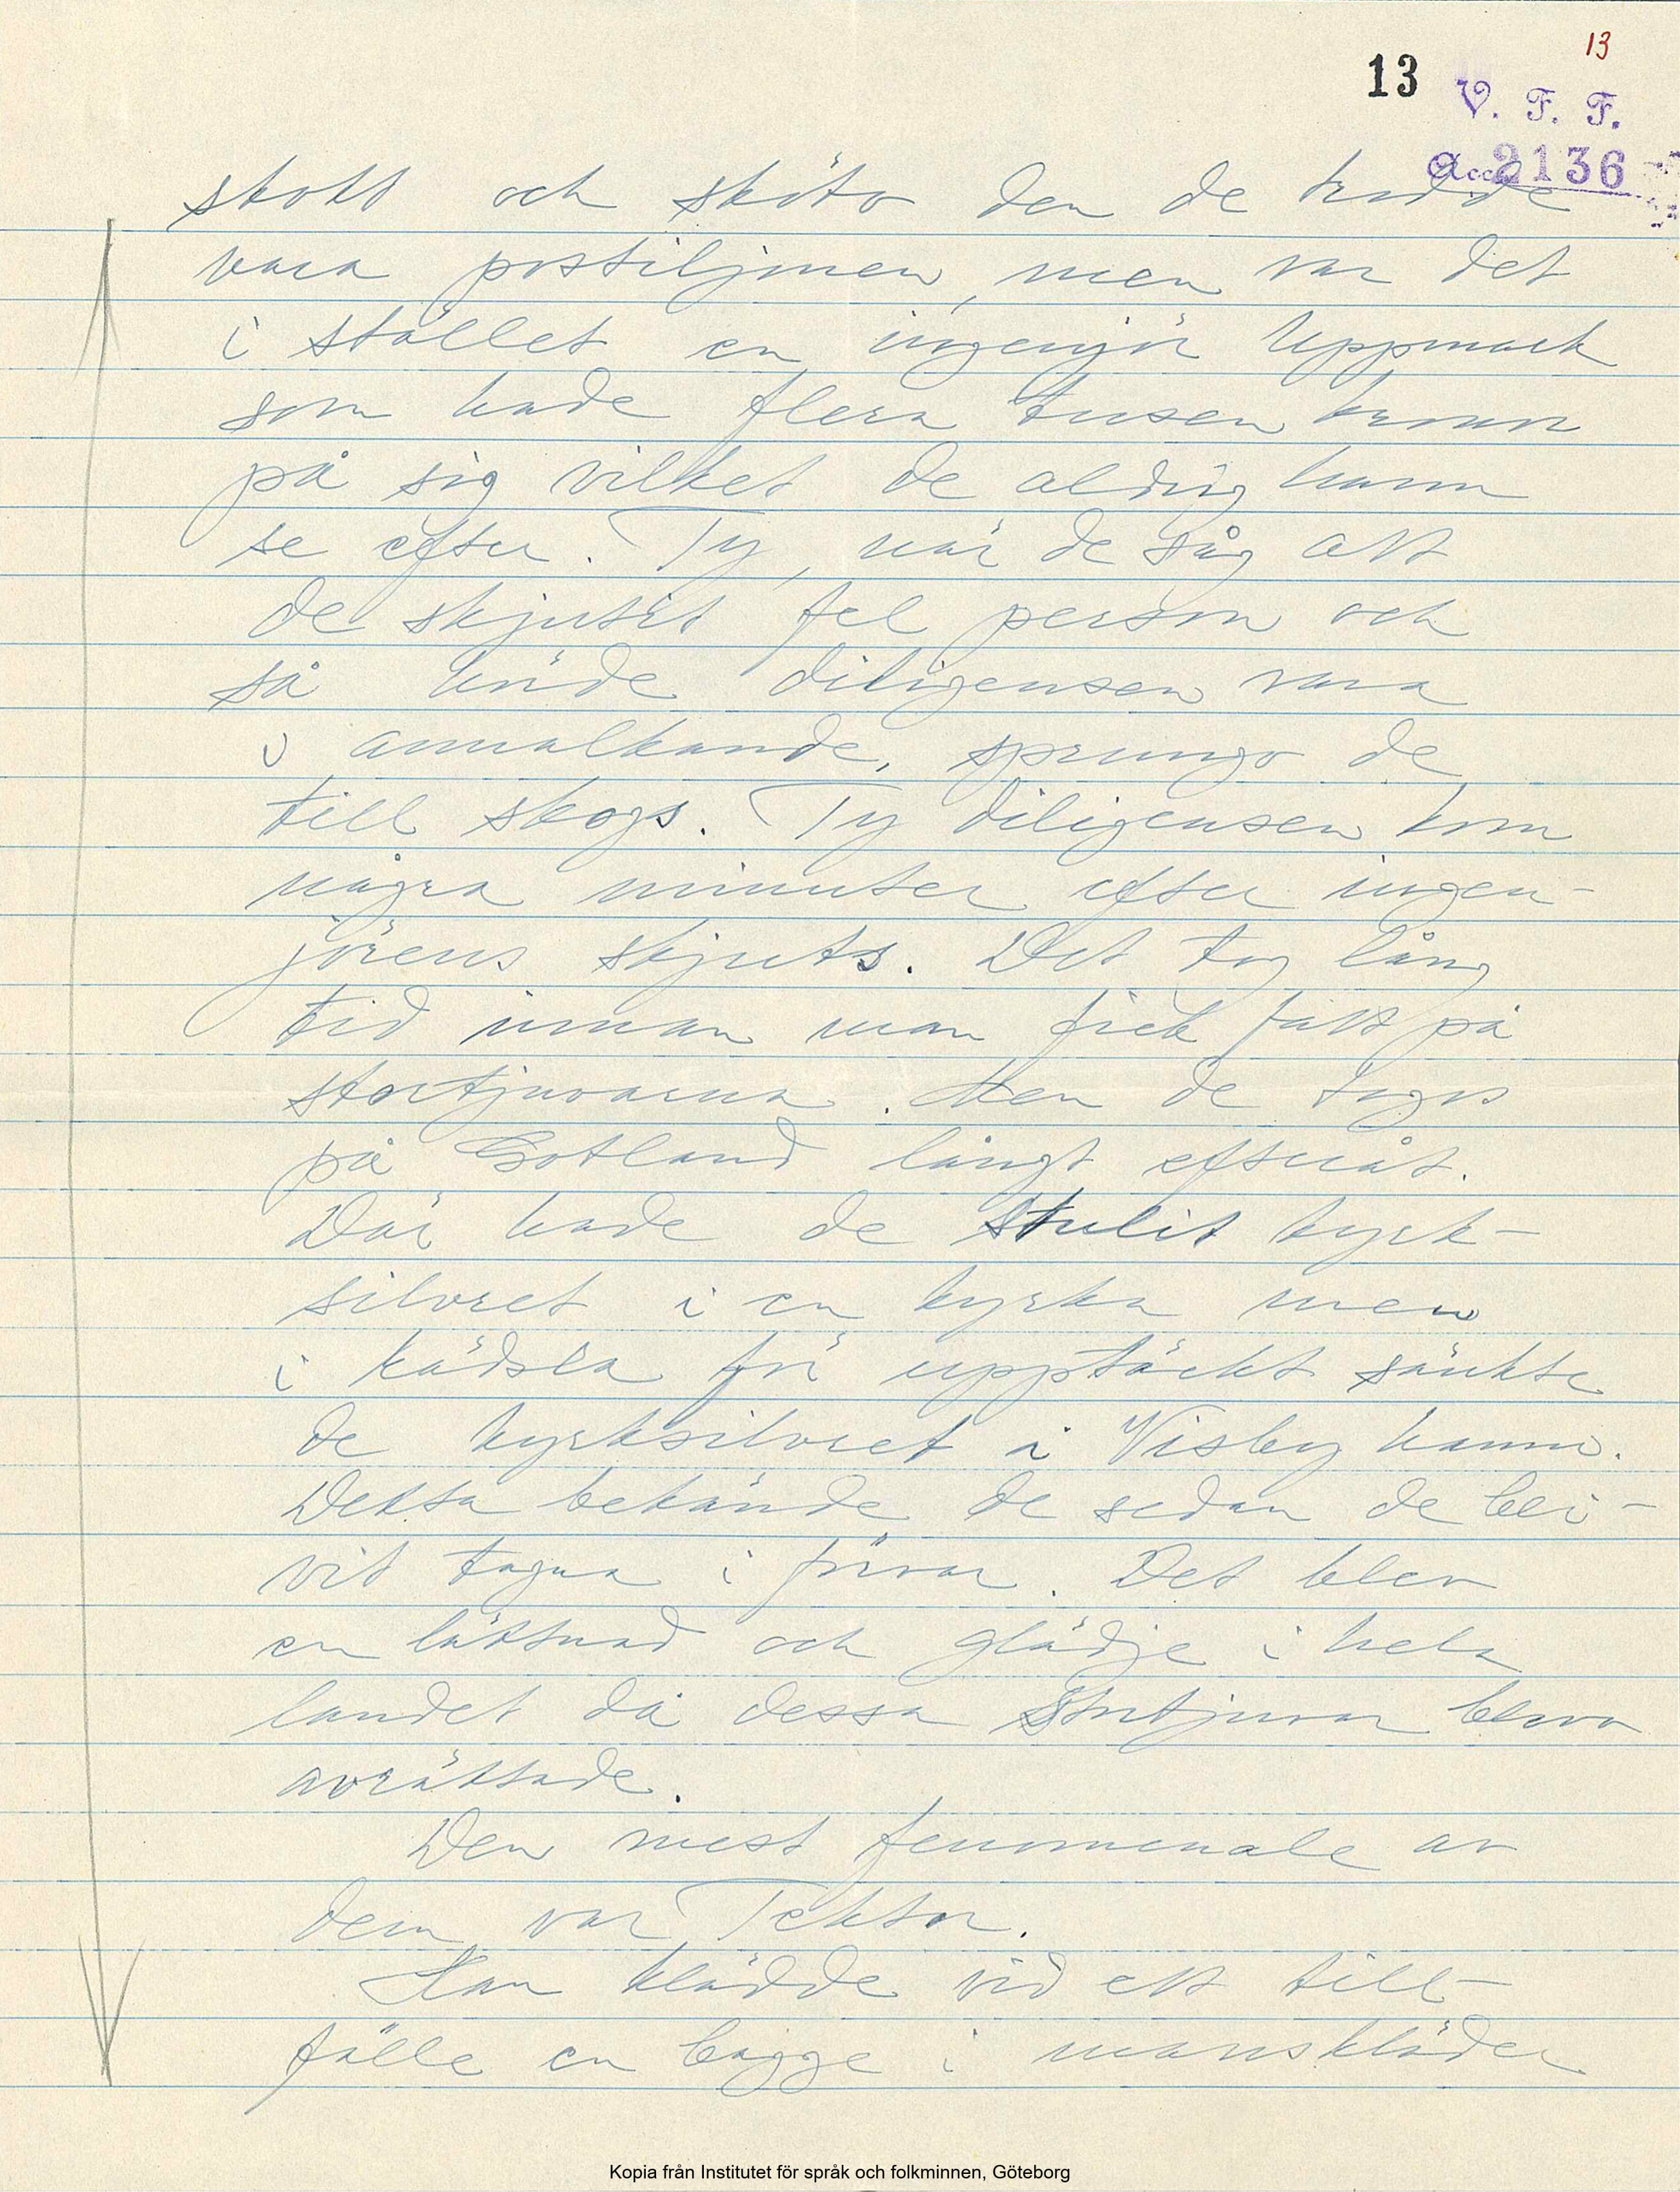 13
13
V. F. F.
Acc. 2136
skott och sköto den de trodde
vara postiljonen, men var det
i stället en ingenjör Uppmark
som hade flera tusen kronor
på sig vilket de aldrig hann
se efter. Ty, när de såg att
de skjutit fel person och
så hörde diligensen vara
i annalkande, sprungo de
till skogs. Ty diligensen kom
några minuter efter ingen-
jörens skjuts. Det tog lång
tid innan man fick fatt på
stortjuvarna. Men de togos
på Gotland långt efteråt.
Där hade de stulit kyrk-
silvret i en kyrka men
i rädsla för upptäckt sänkte
de kyrksilvret i Visby hamn.
Detta bekände de sedan de bli-
vit tagna i förvar. Det blev
en lättnad och glädje i hela
landet då dessa stortjuvar blevo
avrättade.
Den mest fenomenale av
dem var Tektor.
Han klädde vid ett till-
fälle en bagge i manskläder
Kopia från Institutet för språk och folkminnen, Göteborg